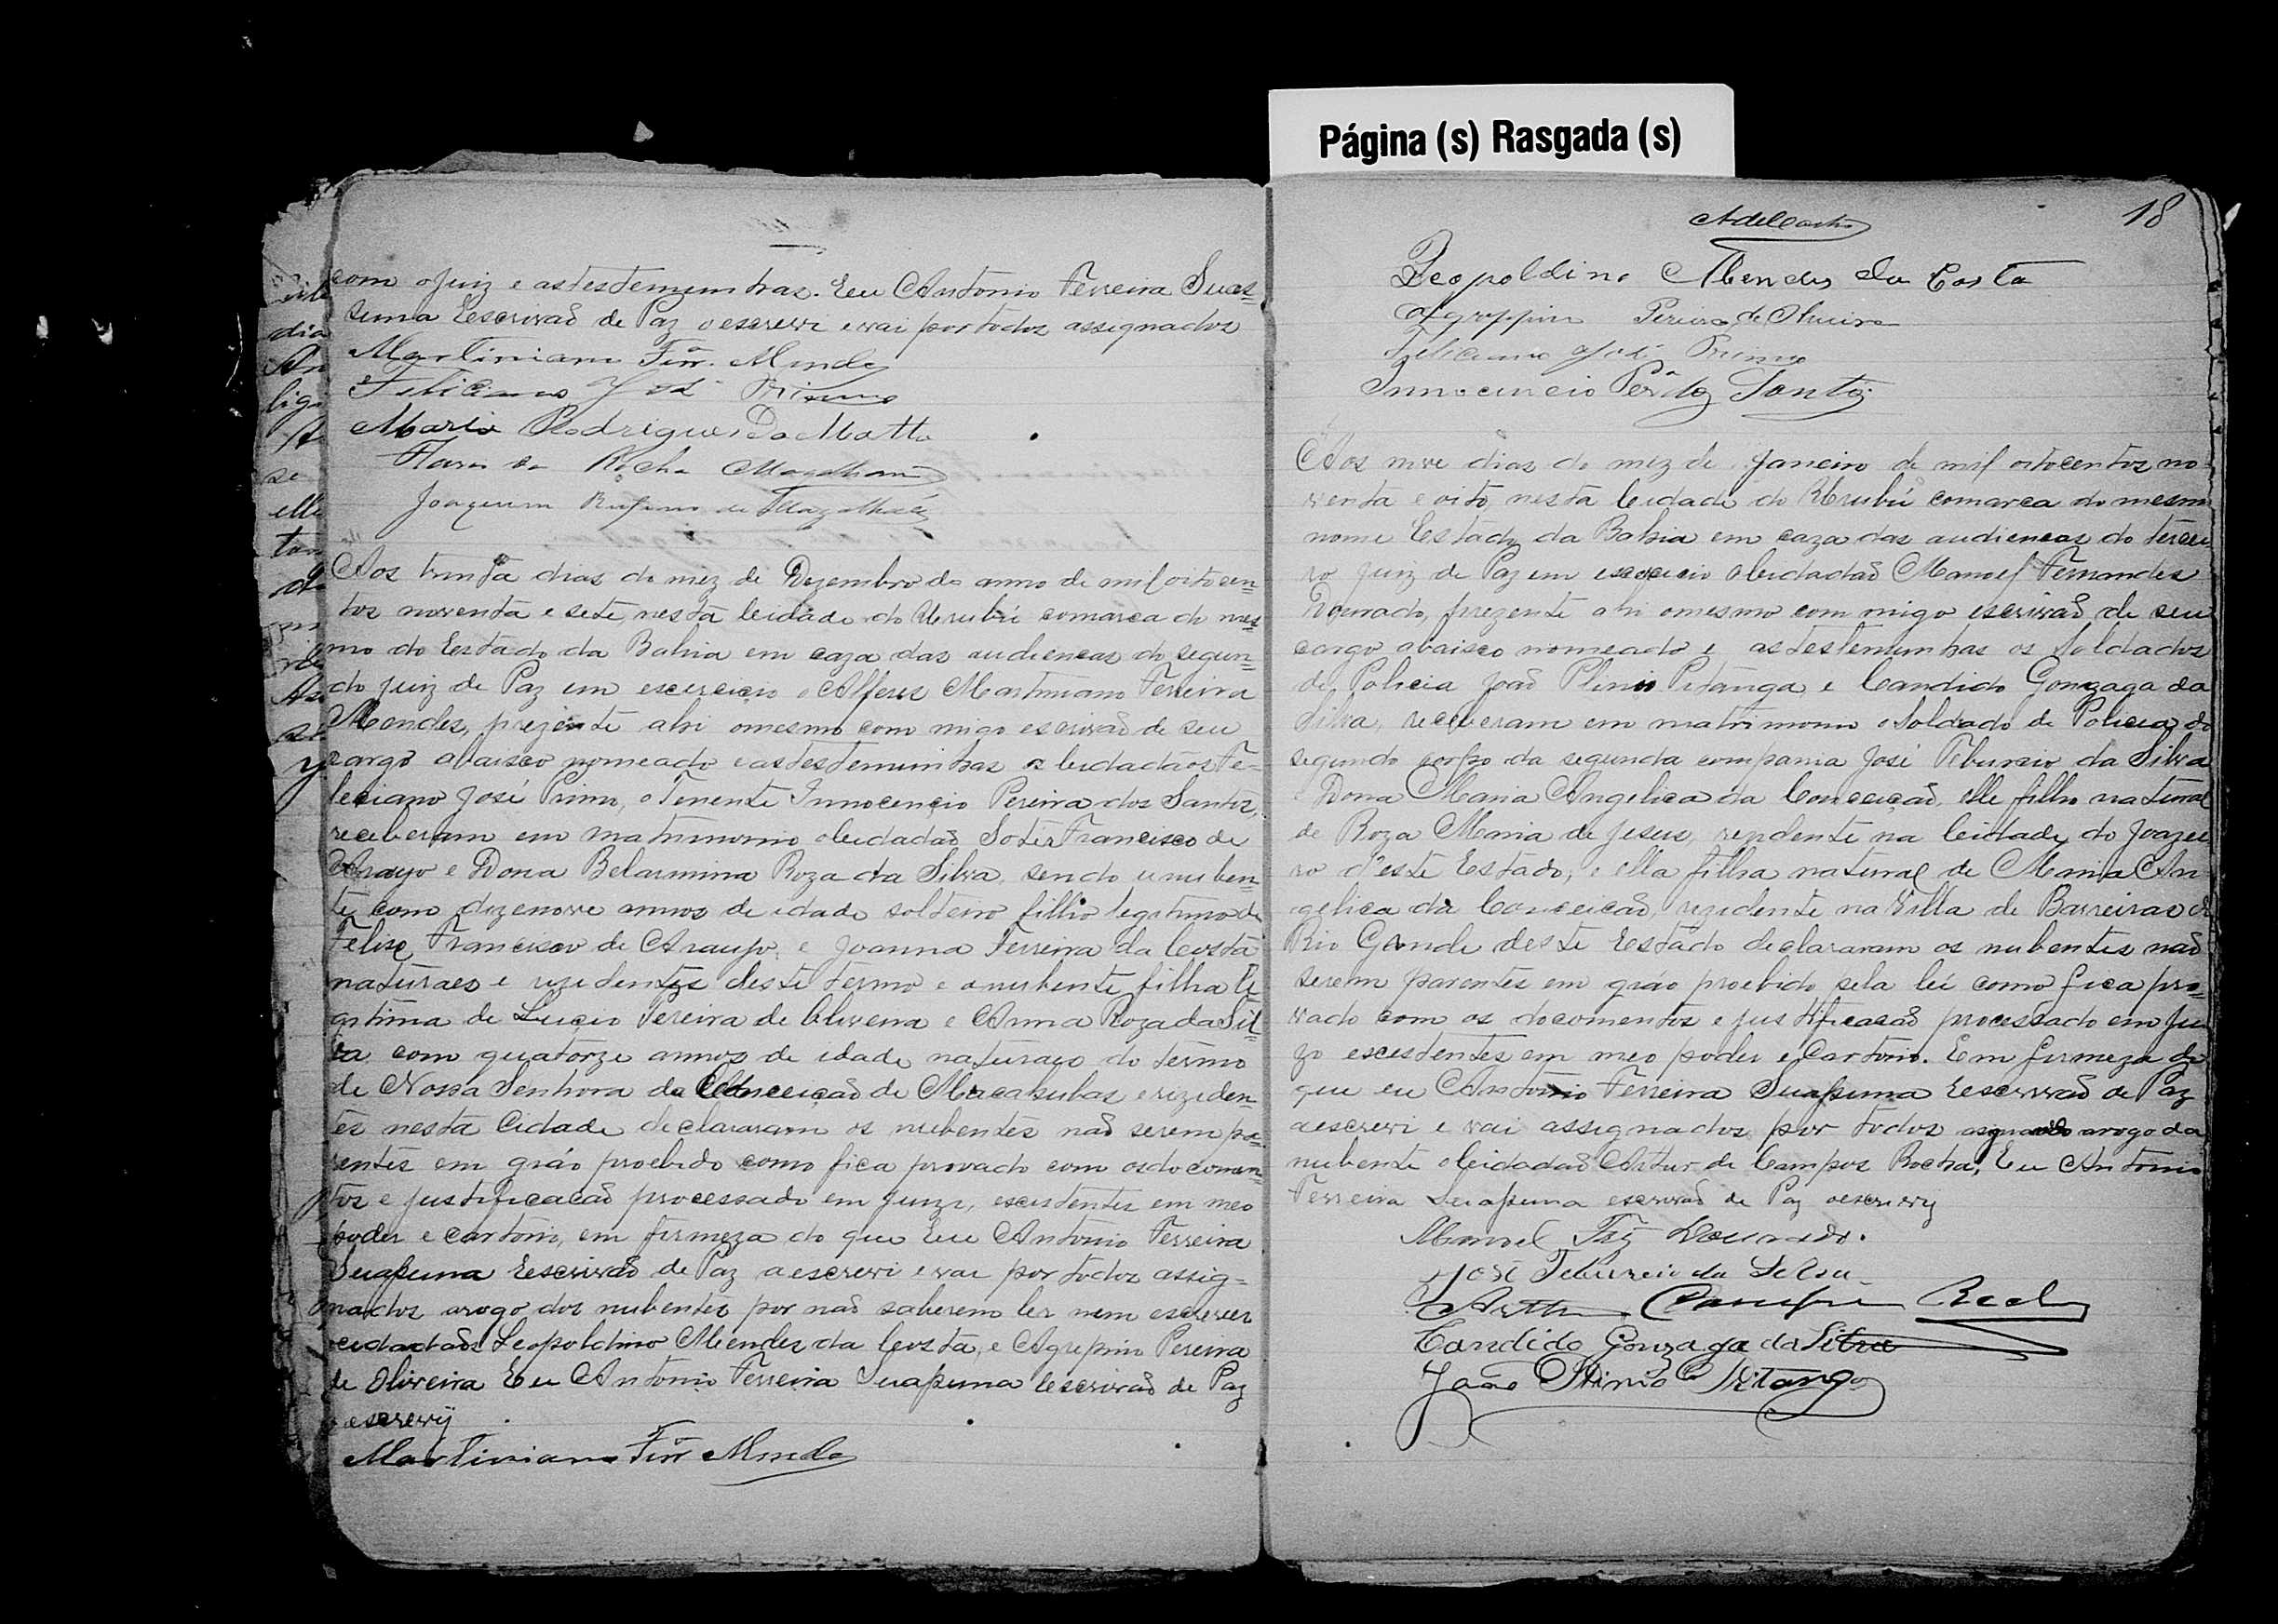 Página (s) Rasgada (s)
com o Juiz e as testemunhas. Eu Antonio Ferreira Suas=
suna Escrivaõ de Paz o escrevi e vai por todos assignados
Martiniano Ferr.ª Mendes
Feliciano José Primo
Maria Rodrigues Da Motta
da Rocha Magalhães
Joaquim Rufino de Magalhães
Aos trinta dias do mez de Dezembro do anno de mil oitocen=
tos noventa e sete, nesta Ceidade do Urubú comarca do mes=
mo do Estado da Bahia em caza das audiencas do segun=
do Juiz de Paz em escercicio o Alferes Martiniano Ferreira
Mendes, prezente ahi omesmo com migo escrivaõ de seu
cargo abaisco nomeado e as testemunhas os Ceidadãos Fe-
leciano José Primo, o Tenente Innocencio Pereira dos Santos,
receberam em matrimonio o Ceidadaõ Soter Francisco de
Araujo e Dona Belarmina Roza da Silva, sendo o nuben=
te com dezenove annos de idade solteiro filho legitimo de
Felix Francisco de Araujo, e Joanna Ferreira da Costa
naturaes e rezidentes deste termo e a nubente filha le
gitima de Lucio Pereira de Oliveira e Anna Roza da Sil
va com quatorze annos de idade naturaes do termo
de Nossa Senhora da Conceicaõ de Macahubas e reziden=
tes nesta Cidade declararam os nubentes naõ serem pa=
rentes em gráo proebido como fica provado com os docomen=
tos e justificacaõ processado em Juizo, escestentes em meo
poder e cartorio, em firmeza do que Eu Antonio Ferreira
Suassuna Escrivaõ de Paz a escrevi e vai por todos assig=
nados arogo dos nubentes por naõ saberem ler nem escrever
o ceidadaõs Leopoldino Mendes da Costa, e Agrepino Pereira
de Oliveira Eu Antonio Ferreira Suassuna Escrivaõ de Paz
o escrevij
Martiniano Ferr.ª Mendes
18
Leopoldino Mendes da Costa
Agrippino Pereira de Oliveira
Feliciano José Primo
Innocencio Per.ª dos Santos
Aos nove dias do mez de Janeiro de mil oitocentos no
venta e oito, nesta Ceidade do Urubú comarca do mesmo
nome Estado da Bahia em caza das audiencas do tercei
ro Juiz de Paz em escercicio o Ceidadaõ Manoel Fernandes
Dourado, prezente ahi omesmo com migo escrivaõ de seu
cargo abaisco nomeado e as testemunhas os Soldados
de Policia Joaõ Plinio Pitanga e Candido Gonzaga da
Silva, receberam em matrimonio o Soldado de Policia do
segundo corpo da segunda compania José Teburcio da Silva
e Dona Maria Angelica da Conceicaõ, elle filho natural
de Roza Maria de Jesus, rezidente na Ceidade do Joazei
ro d'este Estado, e ella filha natural de Maria An
gelica da Conceicaõ, rezidente na Villa de Barreirao do
Rio Grande deste Estado declararam os nubentes naõ
serem parentes em gráo proebido pela lei como fica pro=
vado com os docomentos e justificacaõ processado em Jui
zo escestentes em meo poder e Cartorio. Em firmeza do
que eu Antonio Ferreira Suassuna Escrivaõ de Paz
a escrevi e vai assignados por todos arogo da
nubente o Ceidadaõ Artur de Campos Rocha, Eu Antonio
Ferreira Suassuna escrivaõ de Paz o escrevij
Manoel Frz Dourado.
José Teburcio da Silva
Arthur Campos Rocha
Candido Gonzaga da Silva
João Plinio Pitanga